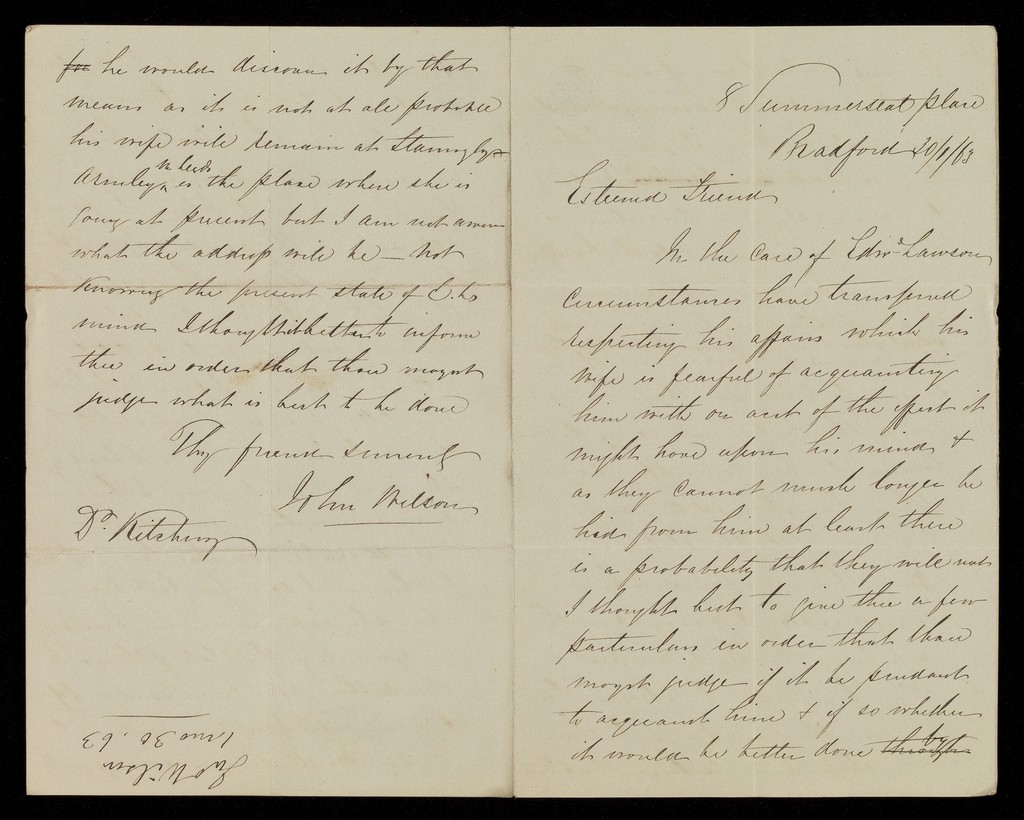 8 Summerseat place
Bradford 20/1/63
Esteemed Friend
In the case of Edwd Lawson
circumstances have transpired
respecting his affairs which his
wife is fearful of acquainting
him with on acct of the effect it
might have upon his mind &
as they cannot much longer be
hid from him at least there
is a probability that they will not
I thought best to give thee a few
particulars in order that thou
mayst judge if it be prudent
to acquaint him & if so whether
it would be better done through by
for he would discover it by that
means as it is not at all probable
his wife will remain at Stanningley
Armley nr Leeds is the place where she is
going at present but I am not aware
what the address will be — Not
knowing the present state of E. Ls
mind I thought it better to inform
thee in order that thou mayst
judge what is best to be done
Thy friend sincerely
John Wilson
Dr Kitching
Jno Wilson
1 mo 30. 63